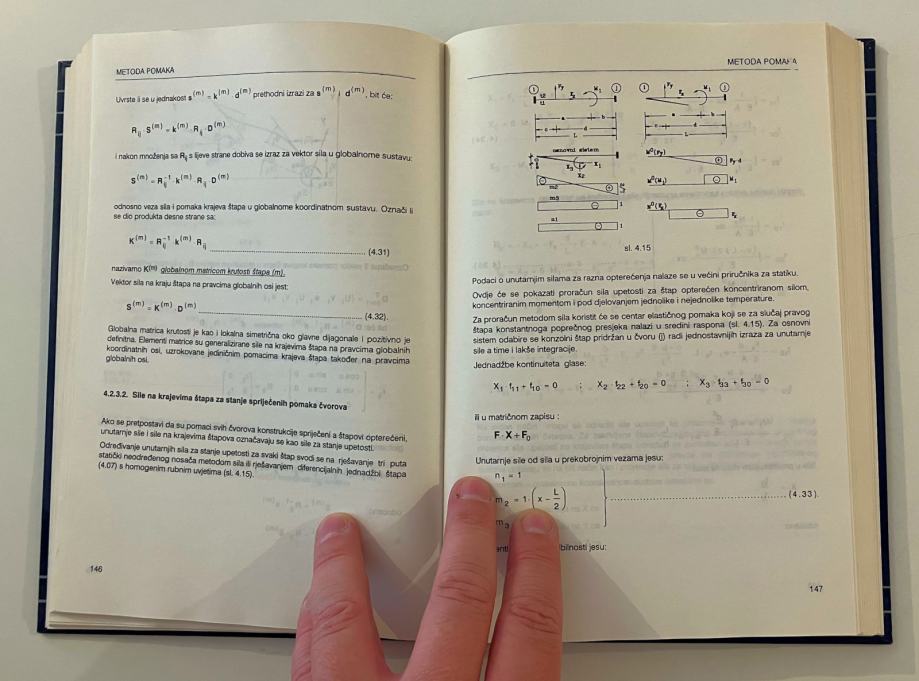 METODA POMAKA
Uvrste li se u jednakost s(m) = k(m) · d(m) prethodni izrazi za s(m) i d(m), bit će:
Rij · S(m) = k(m) · Rij · D(m)
i nakon množenja sa Rij s lijeve strane dobiva se izraz za vektor sila u globalnome sustavu:
S(m) = Rij-1 · k(m) · Rij · D(m)
odnosno veza sila i pomaka krajeva štapa u globalnome koordinatnom sustavu. Označi li
se dio produkta desne strane sa:
K(m) = Rij-1 · k(m) · Rij ........................................ (4.31)
nazivamo K(m) globalnom matricom krutosti štapa (m).
Vektor sila na kraju štapa na pravcima globalnih osi jest:
S(m) = K(m) · D(m) ........................................ (4.32).
Globalna matrica krutosti je kao i lokalna simetrična oko glavne dijagonale i pozitivno je
definitna. Elementi matrice su generalizirane sile na krajevima štapa na pravcima globalnih
koordinatnih osi, uzrokovane jediničnim pomacima krajeva štapa također na pravcima
globalnih osi.
4.2.3.2. Sile na krajevima štapa za stanje spriječenih pomaka čvorova
Ako se pretpostavi da su pomaci svih čvorova konstrukcije spriječeni a štapovi opterećeni,
unutarnje sile i sile na krajevima štapova označavaju se kao sile za stanje upetosti.
Određivanje unutarnjih sila za stanje upetosti za svaki štap svodi se na rješavanje tri puta
statički neodređenog nosača metodom sila ili rješavanjem diferencijalnih jednadžbi štapa
(4.07) s homogenim rubnim uvjetima (sl. 4.15).
146
METODA POMAKA
osnovni sistem
sl. 4.15
Podaci o unutarnjim silama za razna opterećenja nalaze se u većini priručnika za statiku.
Ovdje će se pokazati proračun sila upetosti za štap opterećen koncentriranom silom,
koncentriranim momentom i pod djelovanjem jednolike i nejednolike temperature.
Za proračun metodom sila koristit će se centar elastičnog pomaka koji se za slučaj pravog
štapa konstantnoga poprečnog presjeka nalazi u sredini raspona (sl. 4.15). Za osnovni
sistem odabire se konzolni štap pridržan u čvoru (j) radi jednostavnijih izraza za unutarnje
sile a time i lakše integracije.
Jednadžbe kontinuiteta glase:
X1 · f11 + f10 = 0 ; X2 · f22 + f20 = 0 ; X3 · f33 + f30 = 0
ili u matričnom zapisu :
F · X + F0
Unutarnje sile od sila u prekobrojnim vezama jesu:
n1 = 1
m2 = 1 · (x − L/2) ........................................ (4.33).
m3
bilnosti jesu:
147